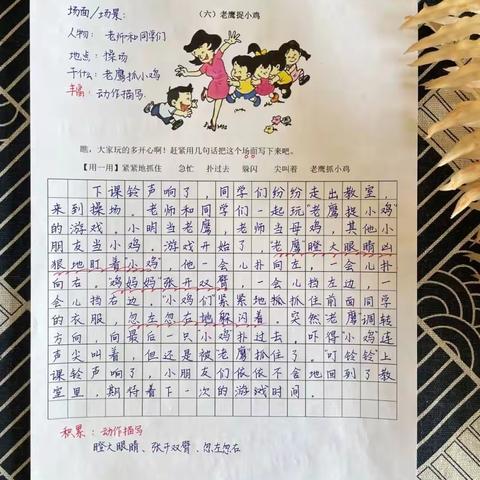 场面/场景：
（六）老鹰捉小鸡
人物：老师和同学们
地点：操场
干什么：老鹰抓小鸡
动作描写
瞧，大家玩的多开心啊！赶紧用几句话把这个场面写下来吧。
【用一用】紧紧地抓住 急忙 扑过去 躲闪 尖叫着 老鹰抓小鸡
下课铃声响了，同学们纷纷走出教室，
来到操场。老师和同学们一起玩"老鹰捉小鸡"
的游戏，小明当老鹰，老师当母鸡，其他小
朋友当小鸡，游戏开始了，"老鹰瞪大眼睛凶
狠地盯着小鸡"他一会儿扑向左，一会儿扑
向右，"鸡妈妈"张开双臂，一会儿挡左边，一
会儿挡右边，"小鸡们"紧紧地抓住前面同学
的衣服，忽左忽右地躲闪着，突然老鹰调转
方向，向最后一只小鸡扑过去，吓得"小鸡"连
声尖叫着，但还是被"老鹰"抓住了。"叮铃铃"上
课铃声响了，小朋友们依依不舍地回到了教
室里，期待着下一次的游戏时间。
积累：动作描写
瞪大眼睛、张开双臂、忽左忽右